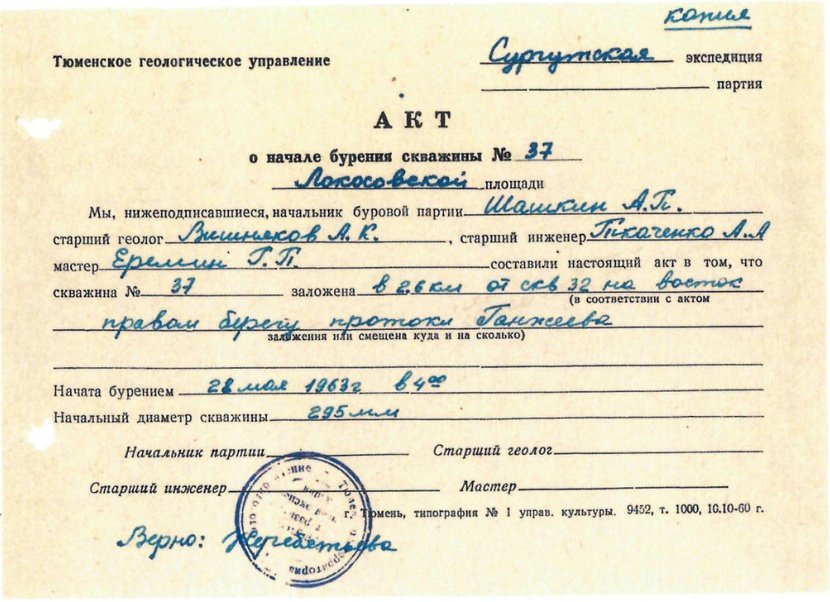 копия
Тюменское геологическое управление
Сургутская экспедиция
партия
АКТ
о начале бурения скважины № 37
Локосовской площади
Мы, нижеподписавшиеся, начальник буровой партии Шашкин А.П.
старший геолог Вишняков А.К., старший инженер Ткаченко А.А
мастер Еремин Г.П. составили настоящий акт в том, что
скважина № 37 заложена в 2.6 км от скв 32 на восток
(в соответствии с актом
правом берегу протоки Ганжеева
заложения или смещена куда и на сколько)
Начата бурением 28 мая 1963г в 4⁰⁰
Начальный диаметр скважины 295 мм
Начальник партии Старший геолог
Старший инженер Мастер
г. Тюмень, типография № 1 управ. культуры. 9452, т. 1000, 10.10-60 г.
Верно: Жеребятьева